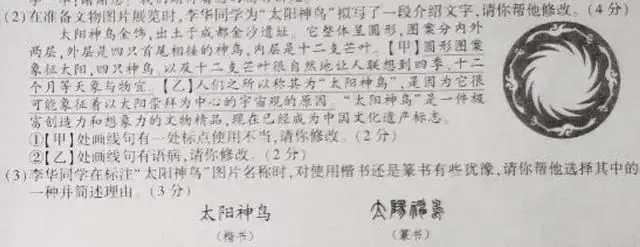 (2)在准备文物图片展览时,李华同学为“太阳神鸟”拟写了一段介绍文字,请你帮他修改。(4分)
太阳神鸟金饰,出土于成都金沙遗址。它整体呈圆形,图案分内外
两层,外层是四只首尾相接的神鸟,内层是十二支芒叶。【甲】圆形图案
象征太阳,四只神鸟、以及十二支芒叶很自然地让人联想到四季、十二
个月等天象与物宜。【乙】人们之所以称其为“太阳神鸟”,是因为它很
可能象征着以太阳崇拜为中心的宇宙观的原因。“太阳神鸟”是一件极
富创造力和想象力的文物精品,现在已经成为中国文化遗产标志。
①【甲】处画线句有一处标点使用不当,请你修改。(2分)
②【乙】处画线句有语病,请你修改。(2分)
(3)李华同学在标注“太阳神鸟”图片名称时,对使用楷书还是篆书有些犹豫,请你帮他选择其中的
一种并简述理由。(3分)
太阳神鸟 太陽神鳥
(楷书) (篆书)